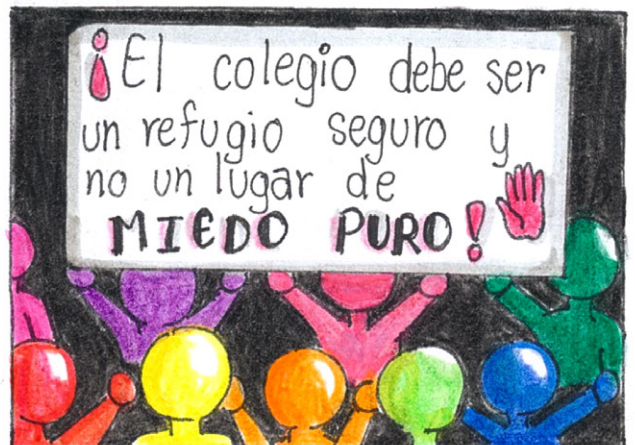 ¡El colegio debe ser
un refugio seguro y
no un lugar de
MIEDO PURO!